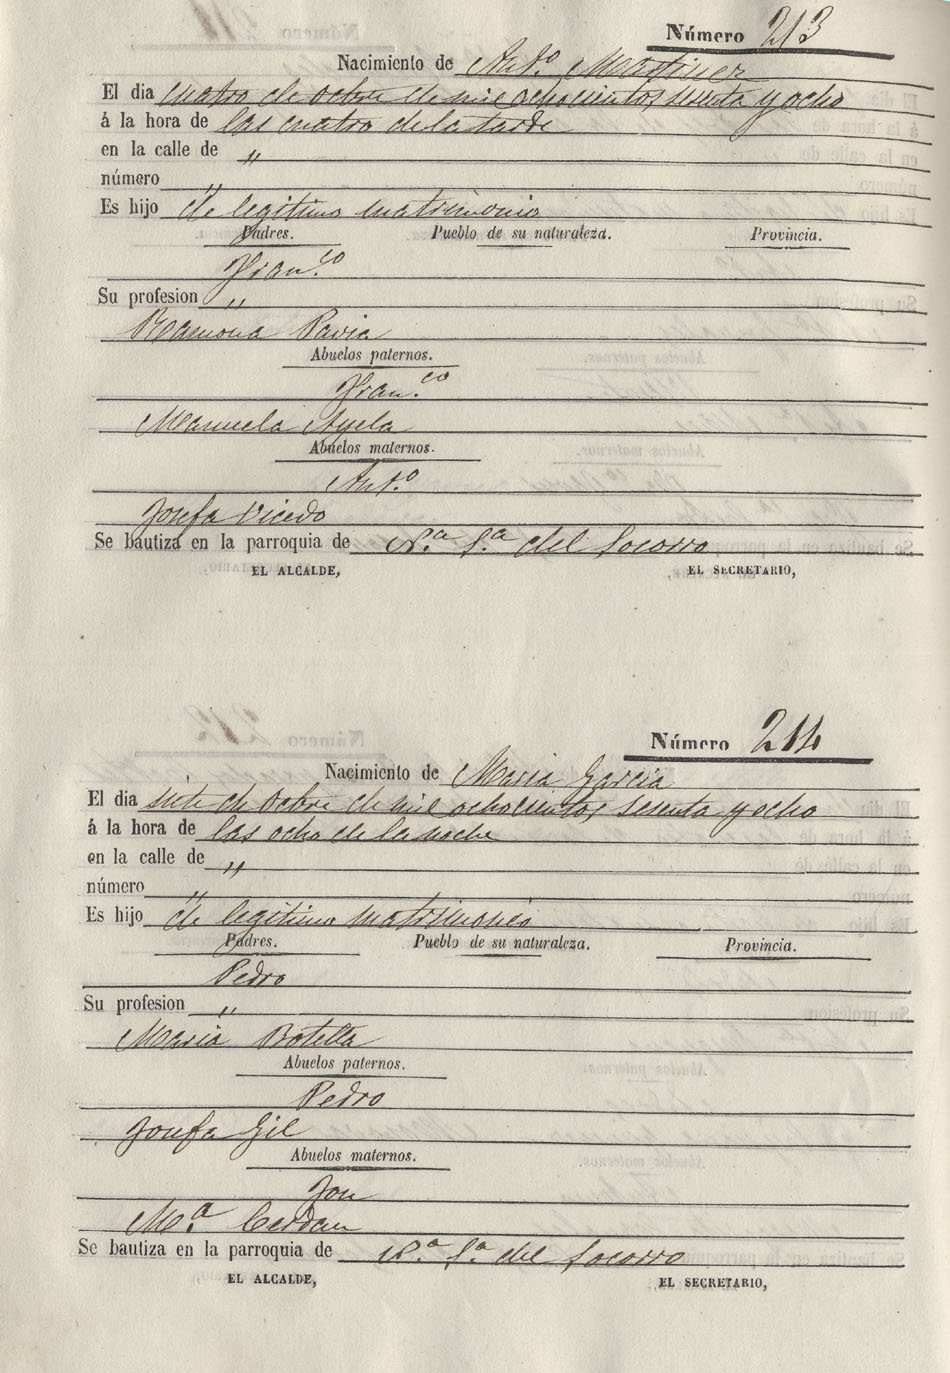 Número 213
Nacimiento de Ant.o Martinez
El dia cuatro de octbre de mil ochocientos sesenta y ocho
á la hora de las cuatro de la tarde
en la calle de "
número "
Es hijo de legitimo matrimonio
Padres. Pueblo de su naturaleza. Provincia.
Fran.co
Su profesion "
Ramona Pavia
Abuelos paternos.
Fran.co
Manuela Ayela
Abuelos maternos.
Ant.o
Josefa Vicedo
Se bautiza en la parroquia de N.a S.a del Socorro
EL ALCALDE, EL SECRETARIO,
Número 214
Nacimiento de Maria Garcia
El dia siete de octbre de mil ochocientos sesenta y ocho
á la hora de las ocho de la noche
en la calle de "
número "
Es hijo de legitimo matrimonio
Padres. Pueblo de su naturaleza. Provincia.
Pedro
Su profesion "
Maria Botella
Abuelos paternos.
Pedro
Josefa Gil
Abuelos maternos.
M.a Cerdan
Se bautiza en la parroquia de N.a S.a del Socorro
EL ALCALDE, EL SECRETARIO,